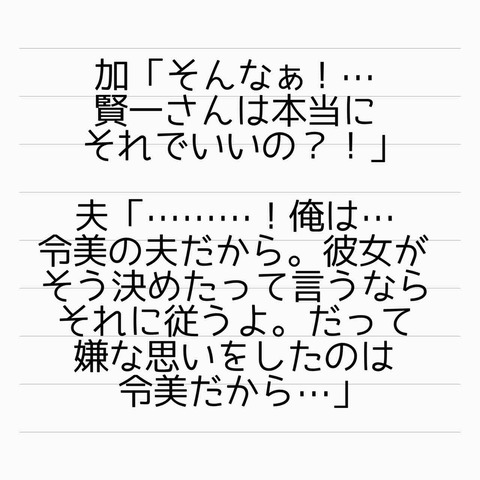 加「そんなぁ！…
賢一さんは本当に
それでいいの？！」
夫「………！俺は…
令美の夫だから。彼女が
そう決めたって言うなら
それに従うよ。だって
嫌な思いをしたのは
令美だから…」